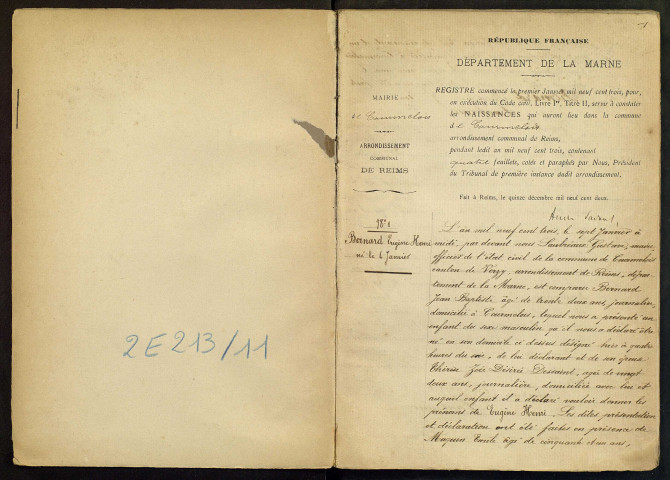 2E213/11
RÉPUBLIQUE FRANÇAISE
DÉPARTEMENT DE LA MARNE
MAIRIE
de Courmelois
ARRONDISSEMENT
COMMUNAL
DE REIMS
REGISTRE commencé le premier Janvier mil neuf cent trois, pour,
en exécution du Code civil, Livre Ier, Titre II, servir à constater
les NAISSANCES qui auront lieu dans la commune
d e Courmelois
arrondissement communal de Reims,
pendant ledit an mil neuf cent trois, contenant
quatre feuillets, cotés et paraphés par Nous, Président
du Tribunal de première instance dudit arrondissement.
Fait à Reims, le quinze décembre mil neuf cent deux.
Bernard Eugène Henri
né le 6 Janvier
L'an mil neuf cent trois, le sept Janvier à
midi, par devant nous Gustave, maire,
officier de l'état civil de la commune de Courmelois
canton de Verzy, arrondissement de Reims, dépar-
tement de la Marne, est comparu Bernard
Jean Baptiste âgé de trente deux ans, journalier,
domicilié à Courmelois, lequel nous a présenté un
enfant du sexe masculin, qu'il nous a déclaré être
né en son domicile ci dessus désigné hier à quatre
heures du soir, de lui déclarant et de son épouse
Thérèse Zoé Désirée, âgée de vingt
deux ans, journalière, domiciliée avec lui et
auquel enfant il a déclaré vouloir donner les
prénoms de Eugène Henri. Les dites présentation
et déclaration ont été faites en présence de
Emile âgé de cinquant et un ans,